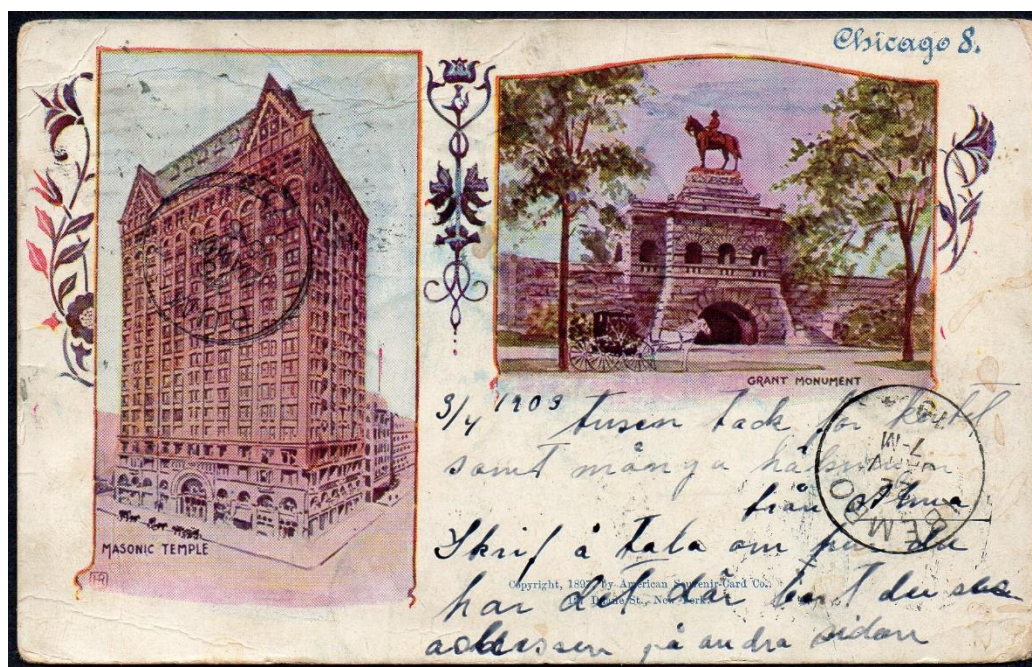 Chicago 8.
MASONIC TEMPLE
GRANT MONUMENT
3/4 1903 tusen tack för kortet
samt många hälsningar
från
Skrif å tala om hur du
har det där bort du ska
adressen på andra sidan
Copyright, 1897, by American Souvenir-Card Co.,
St., New York.
7 M